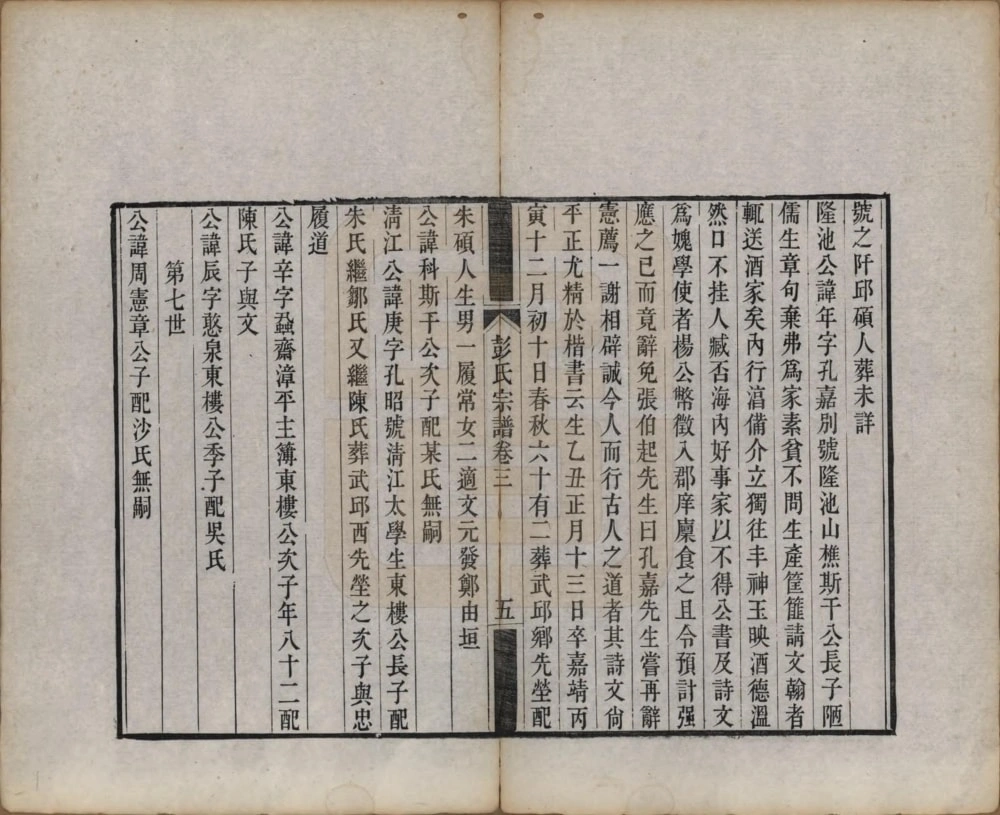 號之阡邱碩人葬未詳
隆池公諱年字孔嘉別號隆池山樵斯干公長子陋
儒生章句棄弗爲家素貧不問生產筐篚請文翰者
輒送酒家矣內行湻備介立獨往丰神玉映酒德溫
然口不挂人臧否海內好事家以不得公書及詩文
爲媿學使者楊公幣徵入郡庠廩食之且令預計强
應之已而竟辭免張伯起先生曰孔嘉先生嘗再辭
憲薦一謝相辟誠今人而行古人之道者其詩文尙
平正尤精於楷書云生乙丑正月十三日卒嘉靖丙
寅十二月初十日春秋六十有二葬武邱鄉先塋配
彭氏宗譜卷三
五
朱碩人生男一履常女二適文元發鄭由垣
公諱科斯干公次子配某氏無嗣
淸江公諱庚字孔昭號淸江太學生東樓公長子配
朱氏繼鄒氏又繼陳氏葬武邱西先塋之次子與忠
履道
公諱辛字齋漳平主簿東樓公次子年八十二配
陳氏子與文
公諱辰字憨泉東樓公季子配吳氏
第七世
公諱周憲章公子配沙氏無嗣